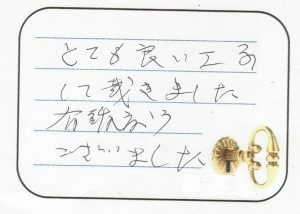 とても良い工事
して戴きました
有難う
ございました